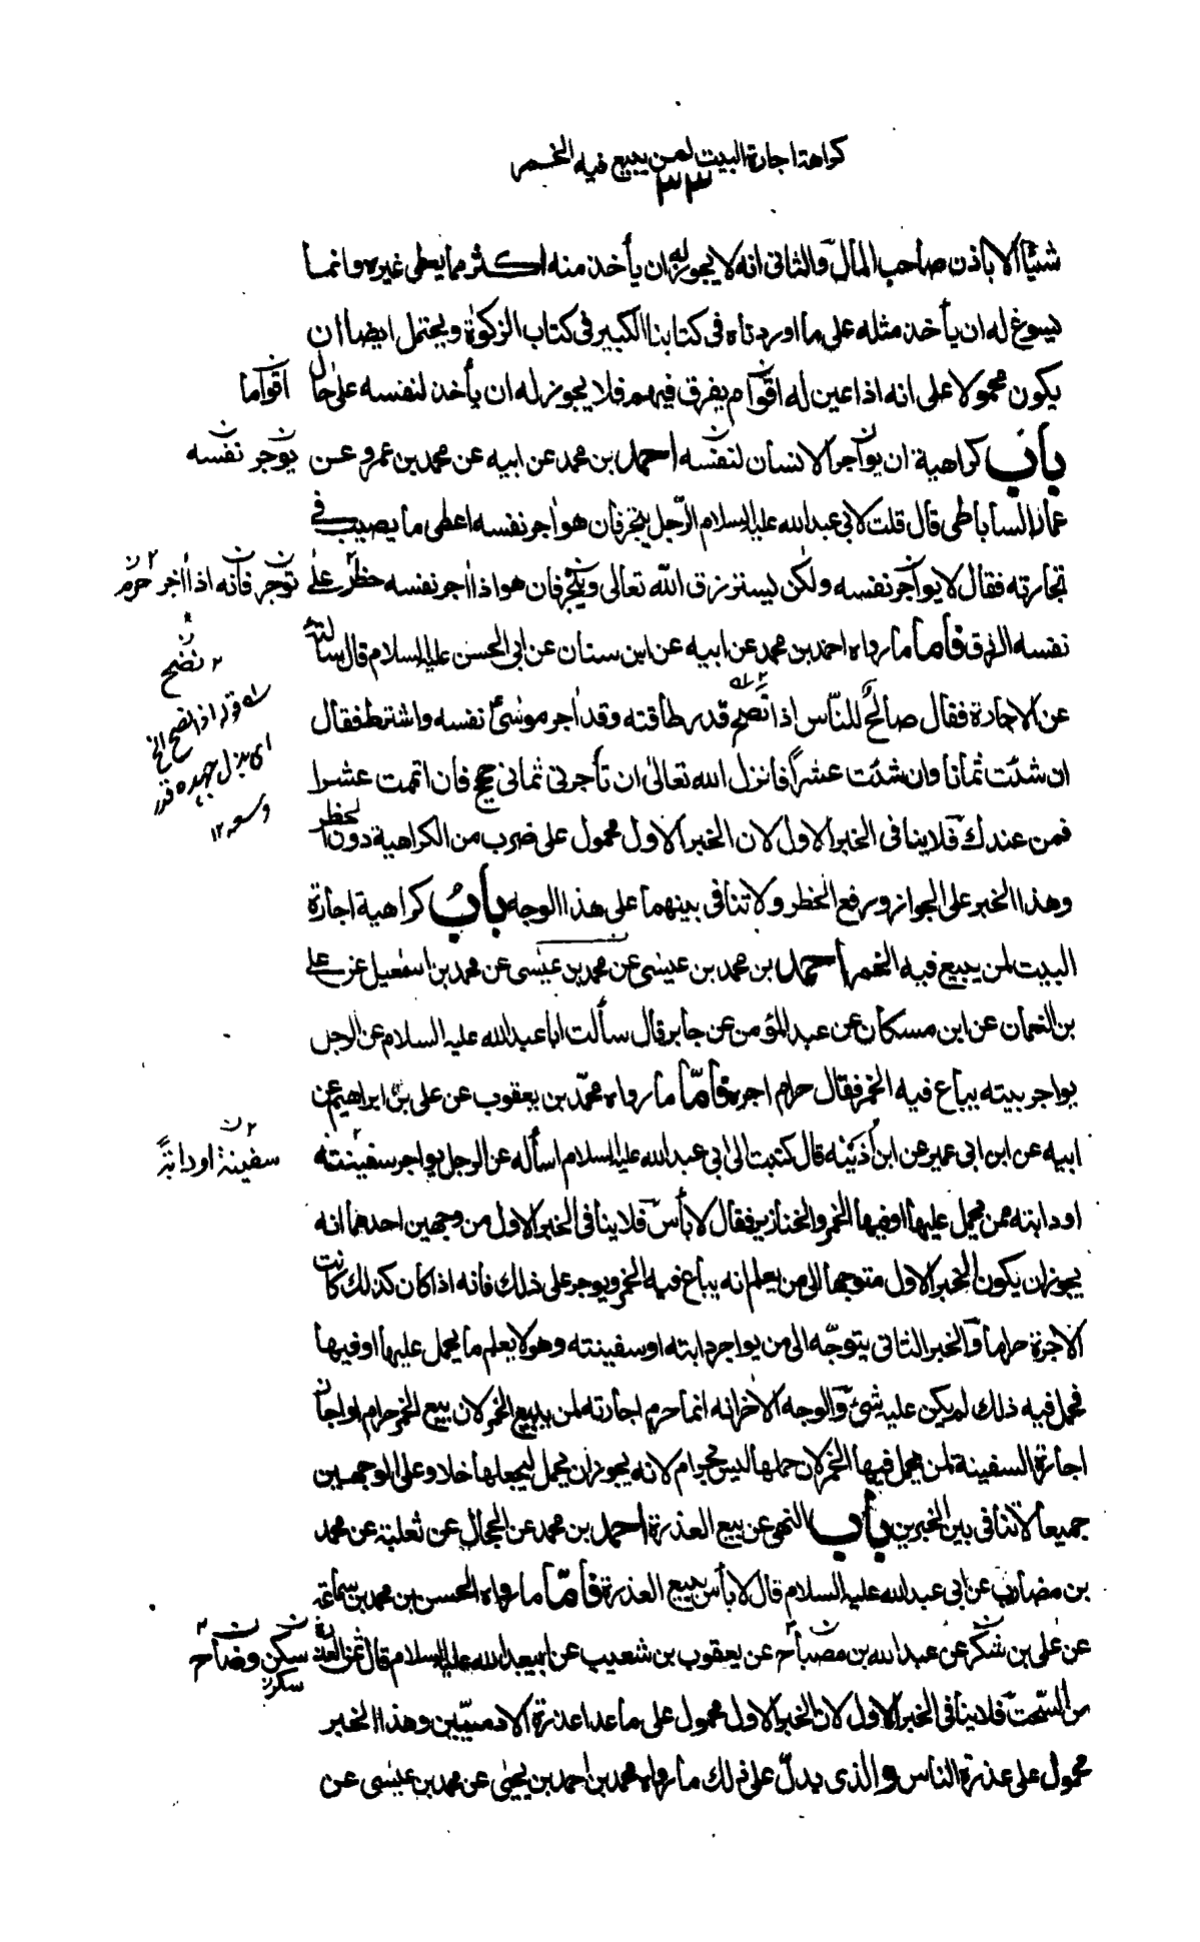 كراهة اجارة البيت لمن يبيع فيه الخمر
٣٣
شيئا الا باذن صاحب المال والثانى انه لا يجوز له ان يأخذ منه اكثر مما يعطى غيره وانما
يسوغ له ان يأخذ مثله على ما اوردناه فى كتابنا الكبير فى كتاب الزكوة ويحتمل ايضا ان
يكون محمولا على انه اذا عين له اقوام يفرق فيهم فلا يجوز له ان يأخذ لنفسه على حال
اقواما
باب كراهية ان يواجر الانسان لنفسه احمد بن محمد عن ابيه عن محمد بن عمرو عن
يوجر نفسه
عمار الساباطى قال قلت لابى عبد الله عليه السلام الرجل يتجر فان هو اجر نفسه اعطى ما يصيب فى
تجارته فقال لا يواجر نفسه ولكن يسترزق الله تعالى ويتجر فان هو اذا اجر نفسه حظر على
توجر فانه اذا اجر حرم
نفسه الرزق فاما ما رواه احمد بن محمد عن ابيه عن ابن سنان عن ابى الحسن عليه السلام قال سألته
٢ نضح
عن الاجارة فقال صالح للناس اذا نصح قدر طاقته وقد اجر موسى نفسه واشترط فقال
قوله اذا نضح الخ
ان شئت ثمانا وان شئت عشرا فانزل الله تعالى ان تأجرنى ثمانى حجج فان اتممت عشرا
اى بذل جهده قدر
فمن عندك فلا ينافى الخبر الاول لان الخبر الاول محمول على ضرب من الكراهية دون الحظر
وسعه ١٢
وهذا الخبر على الجواز ورفع الحظر ولا تنافى بينهما على هذا الوجه باب كراهية اجارة
البيت لمن يبيع فيه الخمر احمد بن محمد بن عيسى عن محمد بن عيسى عن محمد بن اسمعيل عن على
بن النعمان عن ابن مسكان عن عبد المؤمن عن جابر قال سألت ابا عبد الله عليه السلام عن الرجل
يواجر بيته يباع فيه الخمر فقال حرام اجره فاما ما رواه محمد بن يعقوب عن على بن ابراهيم عن
ابيه عن ابن ابى عمير عن ابن اذينه قال كتبت الى ابى عبد الله عليه السلام اسأله عن الرجل يواجر سفينته
سفينة او دابة
او دابته ممن يحمل عليها او فيها الخمر والخنازير فقال لا بأس فلا ينافى الخبر الاول من وجهين احدهما انه
يجوز ان يكون الخبر الاول متوجها الى من يعلم انه يباع فيه الخمر ويوجر على ذلك فانه اذا كان كذلك كانت
الاجرة حراما والخبر الثانى يتوجه الى من يواجر دابته او سفينته وهو لا يعلم ما يحمل عليها او فيها
فحمل فيه ذلك لم يكن عليه شئ والوجه الاخر انه انما حرم اجارته لمن يبيع الخمر لان بيع الخمر حرام واجاز
اجارة السفينة لمن يحمل فيها الخمر لان حملها ليس بحرام لانه يجوز ان يحمل ليجعلها خلا وعلى الوجهين
جميعا لا تنافى بين الخبرين باب النهى عن بيع العذرة احمد بن محمد عن الحجال عن ثعلبة عن محمد
بن مضارب عن ابى عبد الله عليه السلام قال لا بأس ببيع العذرة فاما ما رواه الحسن بن محمد بن سماعة
عن على بن شكر عن عبد الله بن مصباح عن يعقوب بن شعيب عن ابيعبد الله عليه السلام قال ثمن العذرة
سكن وضاح
سكن
من السحت فلا ينافى الخبر الاول لان الخبر الاول محمول على ما عدا عذرة الادميين وهذا الخبر
محمول على عذرة الناس والذى يدل على ذلك ما رواه محمد بن احمد بن يحيى عن محمد بن عيسى عن